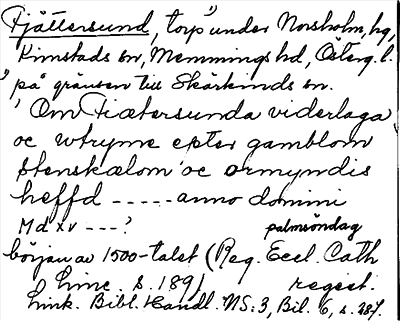 Fjättersund, torp under Norsholm, hg,
Kimstads sn, Memmings hd, Österg. l.
"på gränsen till Skärkinds sn.
"Om Fiætersunda viderlaga
oc wtryme epter gamblom
stenskælom oc ormyndis
heffd ----- anno domini
Mdxv ---?
palmsöndag
början av 1500-talet (Reg. Eccl. Cath
Linc. s. 189) regest.
Link. Bibl. Handl. NS:3, Bil. 6, s. 287.